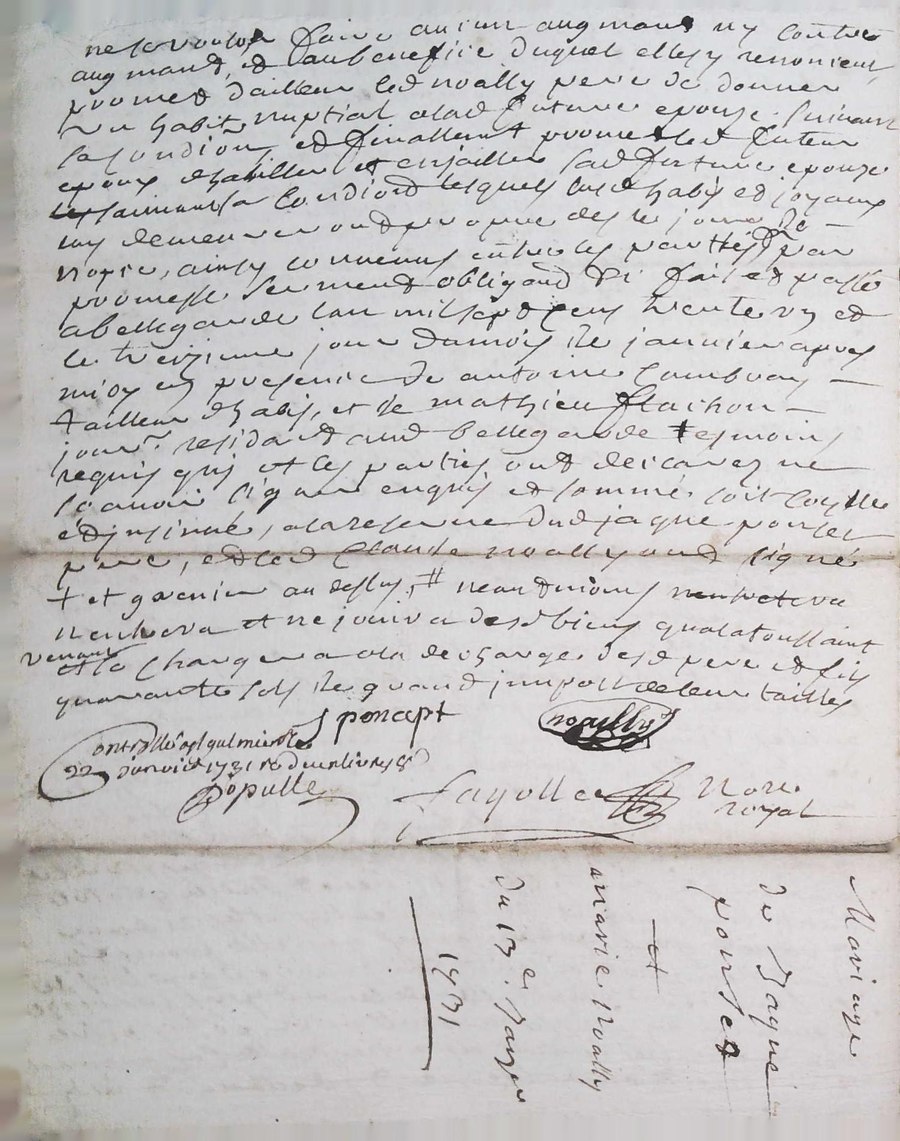 ne se vouloir faire aucun augmand ny contre
augmand, et au benefice duquel elles y renoncent,
promet d'ailleur led noally pere de donner
un habit nuptial a lad future epouze suivant
sa condion, et finallemt promet led futeur
epoux d'habiller et enjailler sad future epouze
suivant sa condiond lesquels habis et joyaux
luy demeureront propre des le jour de
nopce, ainsy convenus entre les parties par
promesse serment obligaond &i fait et passé
a bellegarde lan mil sept cens trente un et
le treizieme jour du mois de janvier apres
midy en presence de antoine
tailleur d'habis, et de mathieu flachon
journ.r residant aud bellegarde tesmoins
requis qui et les parties ont declarez ne
scavoir signer enquis et sommé soit
et jnsinué, a la reserve dud jaque poncet
pere, et led Claude noally ont signé
+ et grenier au dessus, # neandmoins
n'entrera et ne jouira desd biens qu'a la toussaint
venant
et la chargera a la decharge desd pere et fils
quarante sols de grand jmpost de leur tailles
J poncept noailly
Controllé a st galmier le
22 janvier 1731
populle
fayolle Nore
royal
Mariage
de Jaque
poncet
et
marie noally
du 13e. Janver
1731